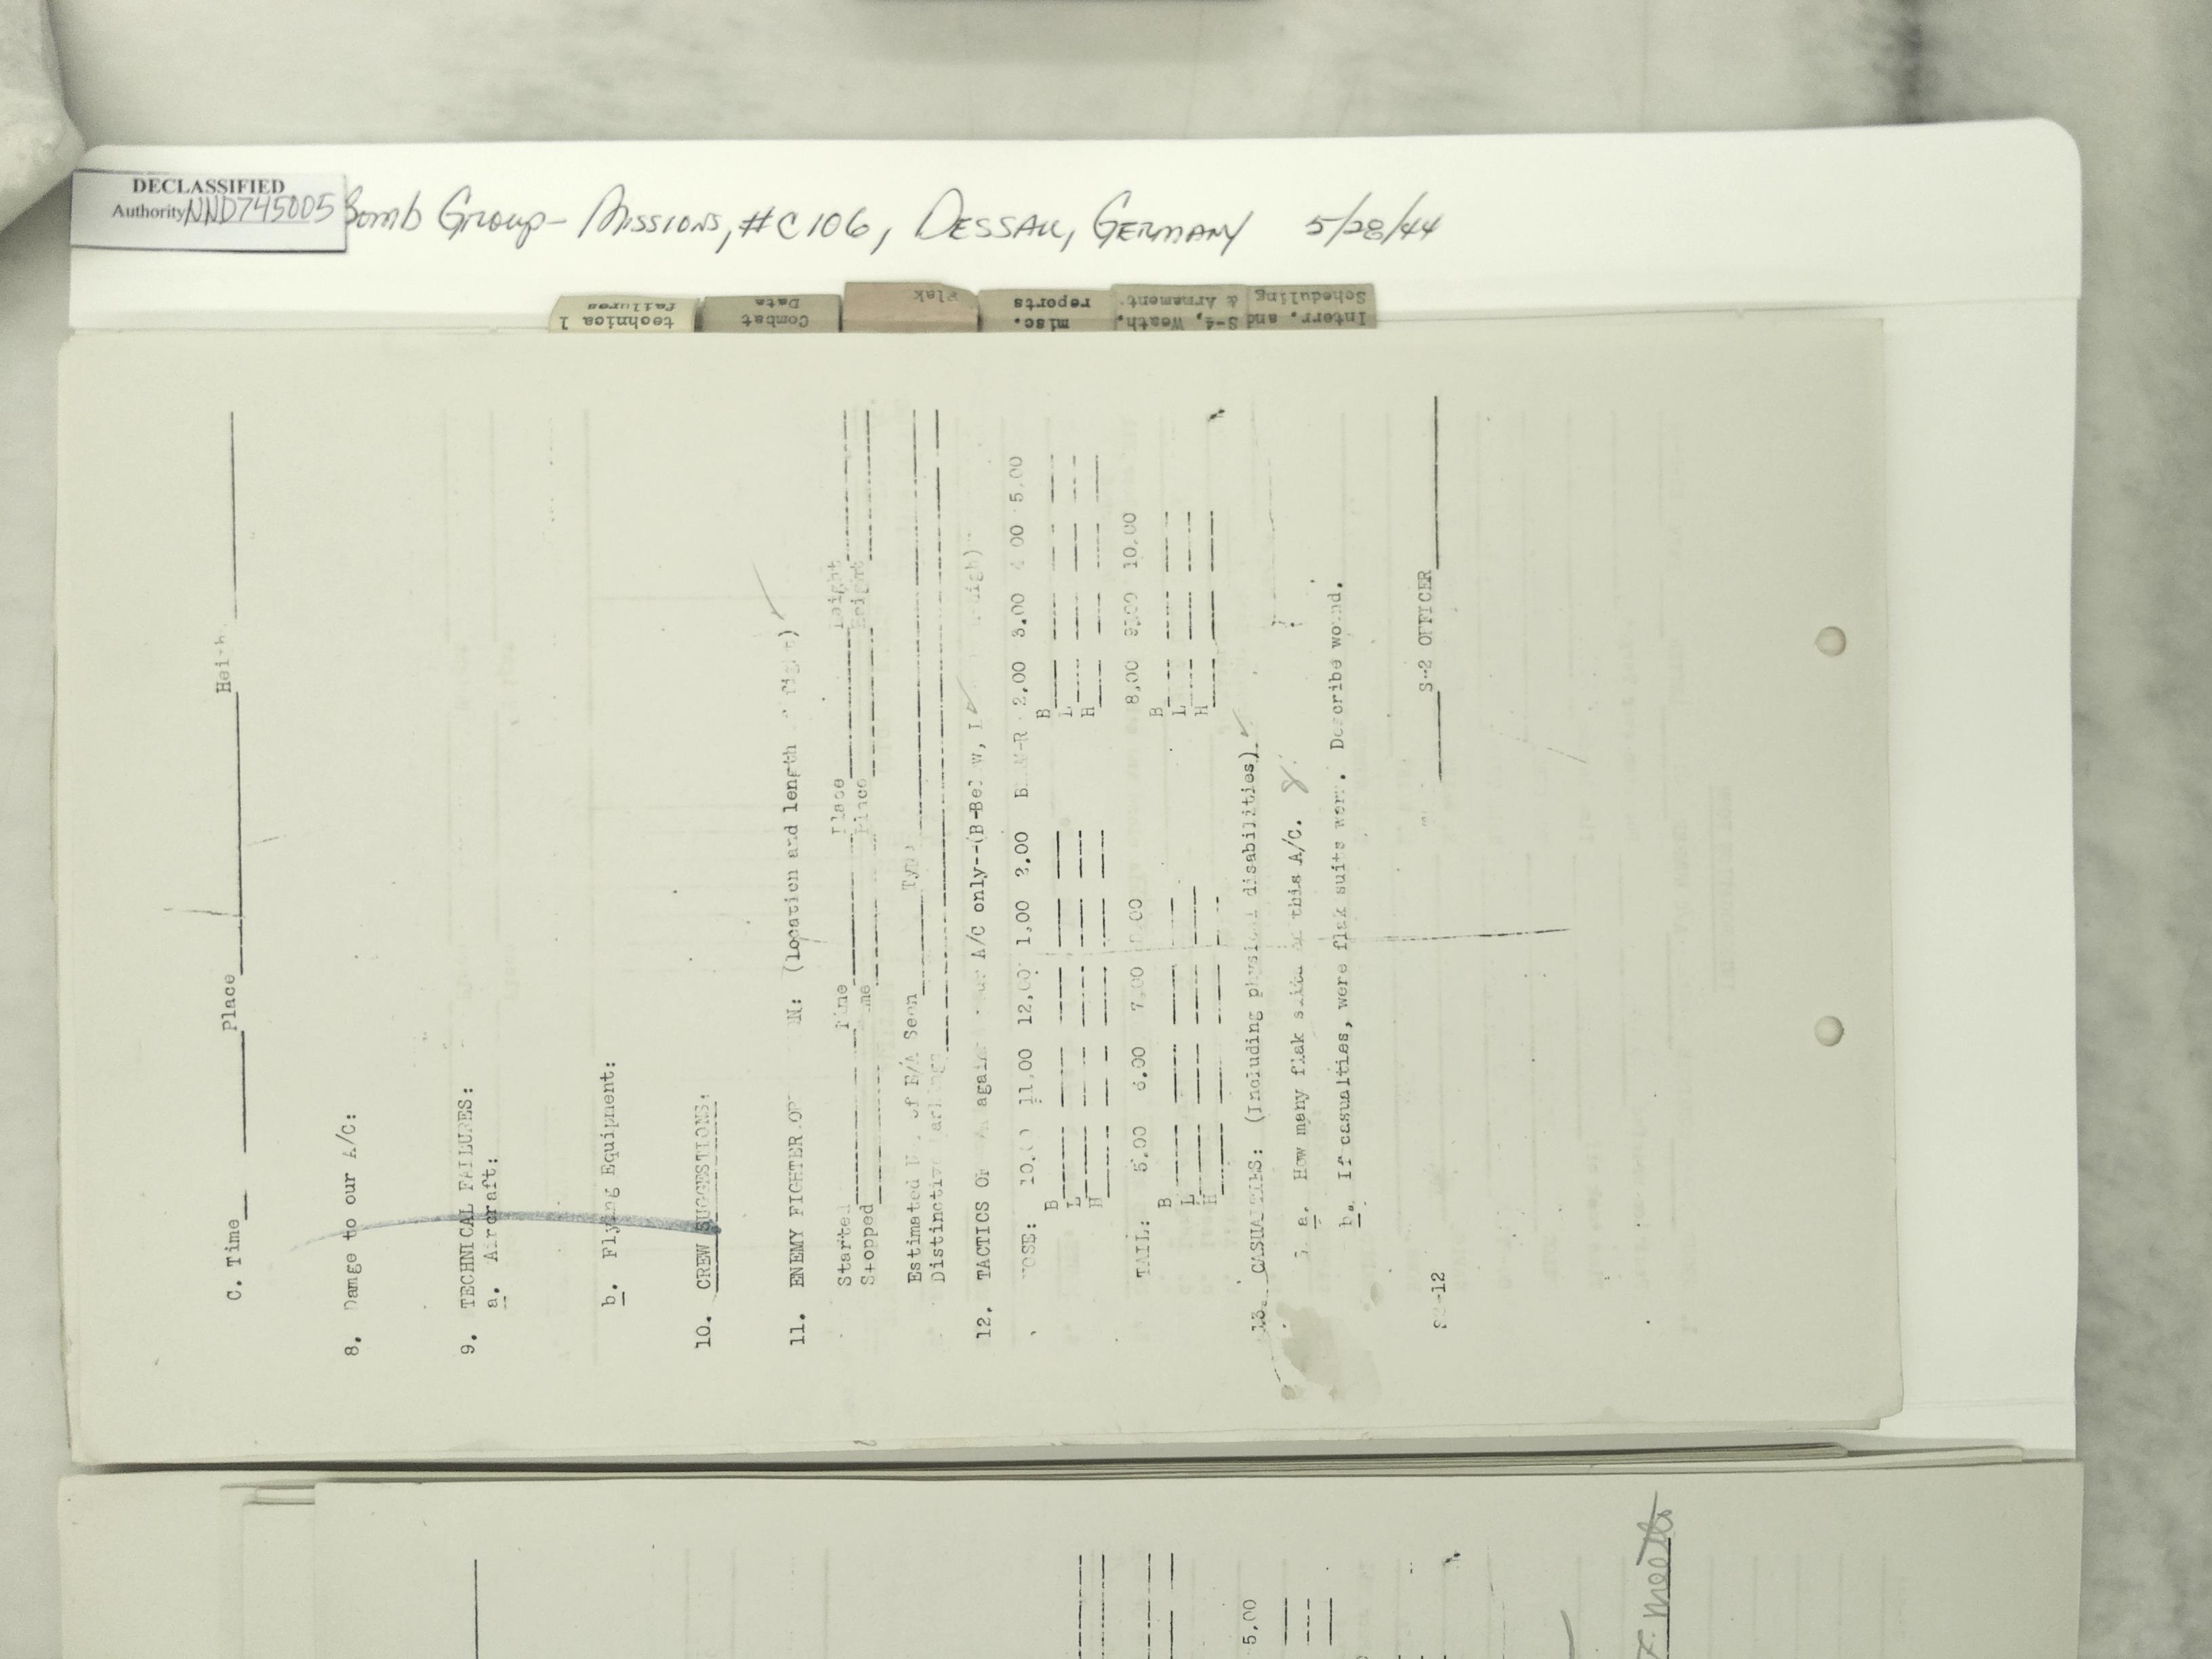 DECLASSIFIED
Authority NND745005
Bomb Group - Missions, #C106, Dessau, Germany 5/28/44
technical
failures
Combat
Data
Flak
misc.
reports
Interr. and S-4, Weath.
Scheduling & Armament.
C. Time Place
8. Damge to our A/C:
9. TECHNICAL FAILURES:
a. Aircraft:
b. Flying Equipment:
10. CREW SUGGESTIONS:
11. ENEMY FIGHTER (location and length
Started Place
Stopped Place Height
Estimated of E/A Seen
Distinctive
12. TACTICS A/C only--(B-Below, L
11.00 12.00 1.00 2.00 2.00 3.00 4.00 5.00
B B
L L
H H
TAIL: 5.00 6.00 7.00 8.00 8.00 9.00 10.00
B B
L L
H H
13. CASUALTIES: (Including physical disabilities)
a. How many flak suits this A/C. 8
b. If casualties, were flak suits worn. Describe wound.
S-2 OFFICER
-12
5.00